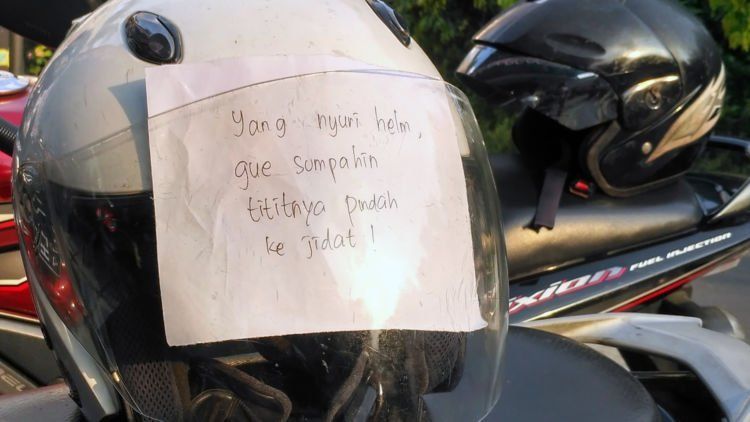 Yang nyuri helm,
gue sumpahin
tititnya pindah
ke jidat !
xion FUEL INJECTION